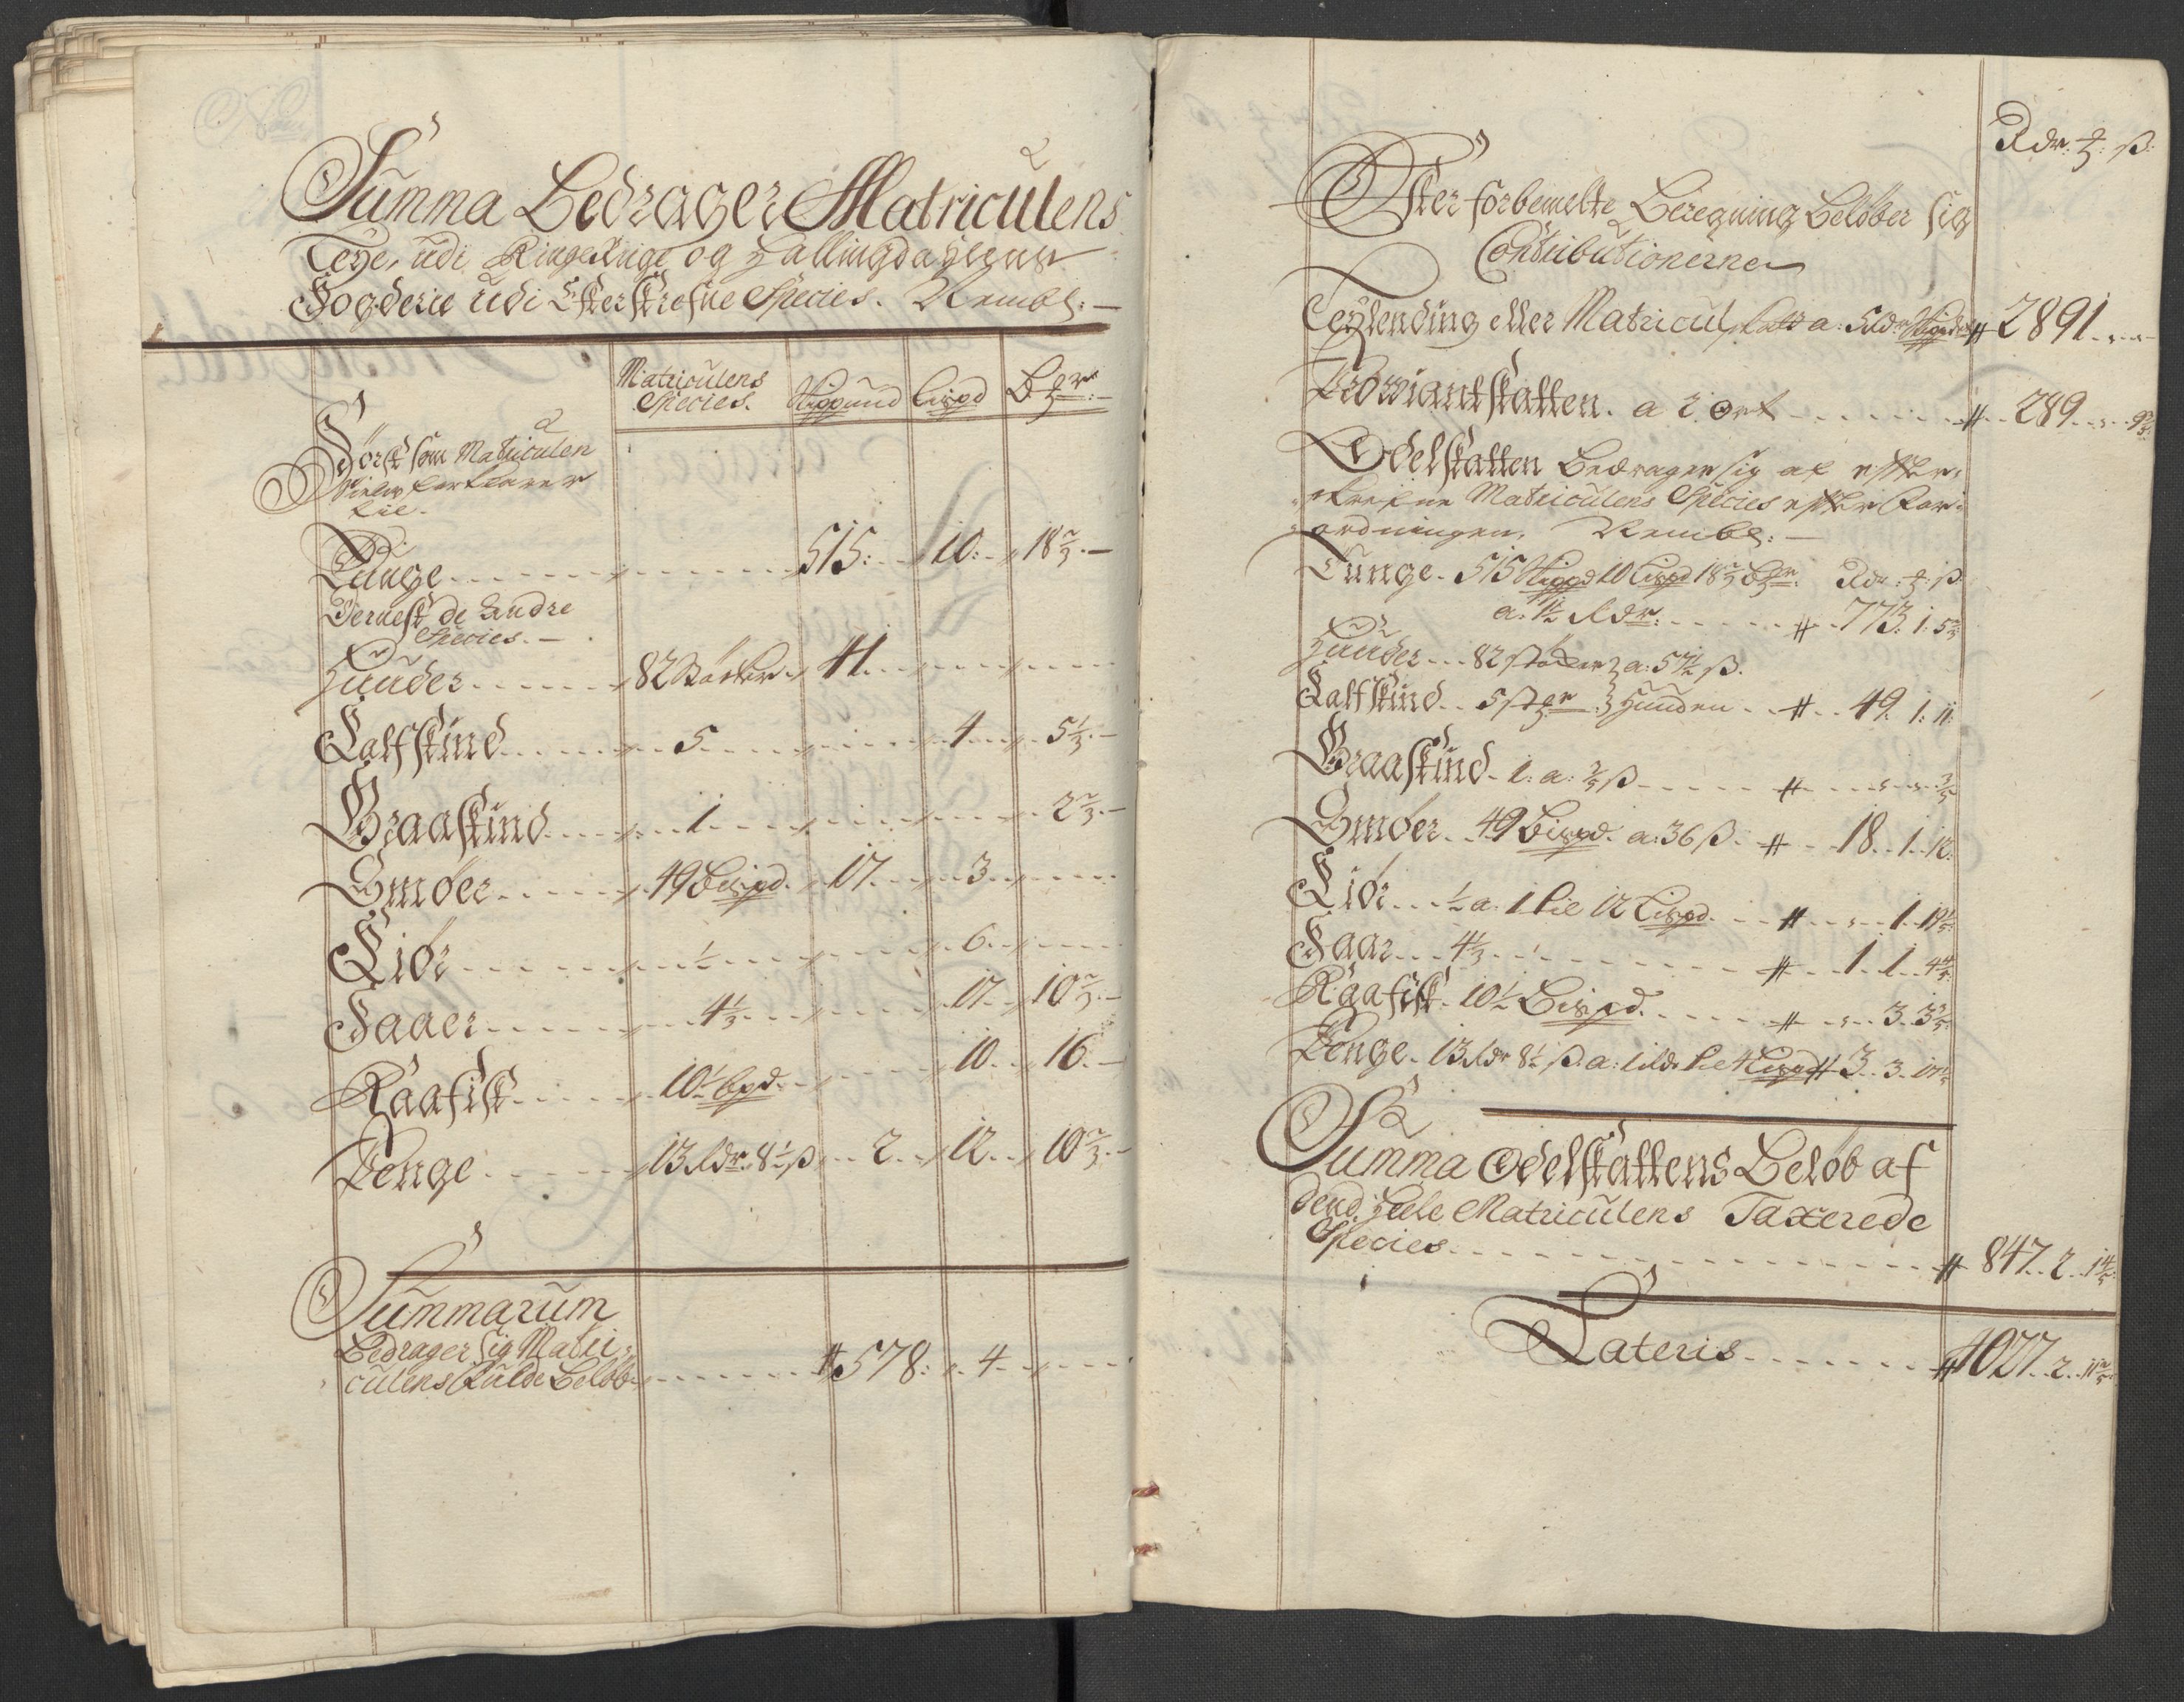 Summa Bedrager Matriculens
Leye, udi Ringerige og Hallingdahlens
Fogderie udi Efterskrefne Species. Nembl: —
Matriculens
Species. Skippund Lispd Bz mr: —
Först som Matriculen
forklarer
till.
Tunge 515: 10: 18 2/3. —
Dernest de Andre
Species. —
Huuder 82 41.
Kalfskind 5 1 5 1/3. —
Graaskind 1 2 2/3. —
Smöer 49 Bispd. 17 3
Tiör 1/2 6
Faaer 4 1/3 17 10 2/3. —
Raafisk 10 1/2 bpd. 10 16. —
Penge 13 Rdr. 8 1/2 ß 2 12 10 2/3. —
Summarum
Bedrager Sig Matri-
culens fulde Belöb # 578: 4
Rdr: ꝗ: ß:
Efter forbemelte Beregning Belöber sig
Contributionerne
Leylending eller Matricul skatt a: 5 Rdr Skipdt # 2891
Proviantskatten. a 2 ort # 289 9 3/5
Odelskatten Bedrager sig af efter-
skrefne Matriculens Species efter For-
ordningen. Nembl: —
Tunge. 515 Skippd 10 Lispd 18 2/3 Bzmr. Rdr: ꝗ: ß
a: 1 1/2 Rdr: # 773: 1: 5 3/5
Huuder 82 a: 57 1/2 ß.
Kalfskind 5 Huuden # 49. 1: 11:
Graaskind 1: a: 3/5 ß # 3/5
Smöer 49 Bispd. a: 36 ß. # 18 1 12:
Tiör 1/2 a: 1 til 12 Lispd. # 1 19 1/5:
Faar 4 1/3 # 1 1 4 4/5:
Raafisk 10 1/2 Bispd. # 3. 3 3/5:
Penge. 13 Rdr 8 1/2 ß. a: 1 Rdr til 4 Lispd # 3 3
Summa Odelskattens Belöb af
dend Heele Matriculens Taxerede
Species # 847 2 1 4/5:
Lateris # 4027 2 11 2/5